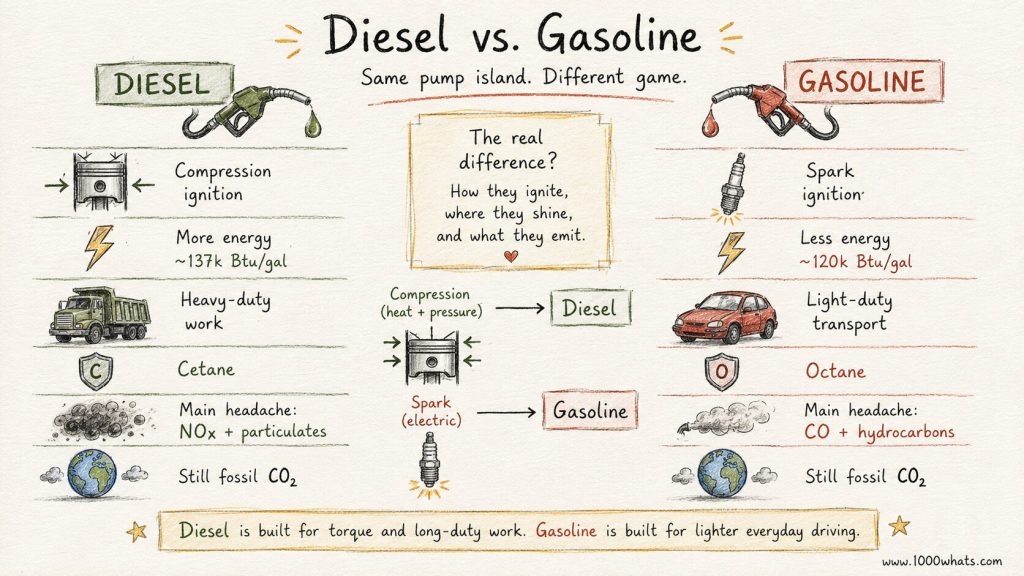 Diesel vs. Gasoline
Same pump island. Different game.
DIESEL
Compression
ignition
More energy
~137k Btu/gal
Heavy-duty
work
C
Cetane
Main headache:
NOx + particulates
Still fossil CO₂
The real
difference?
How they ignite,
where they shine,
and what they emit.
Compression
(heat + pressure)
Diesel
Spark
(electric)
Gasoline
GASOLINE
Spark
ignition
Less energy
~120k Btu/gal
Light-duty
transport
O
Octane
Main headache:
CO + hydrocarbons
Still fossil CO₂
Diesel is built for torque and long-duty work. Gasoline is built for lighter everyday driving.
www.1000whats.com